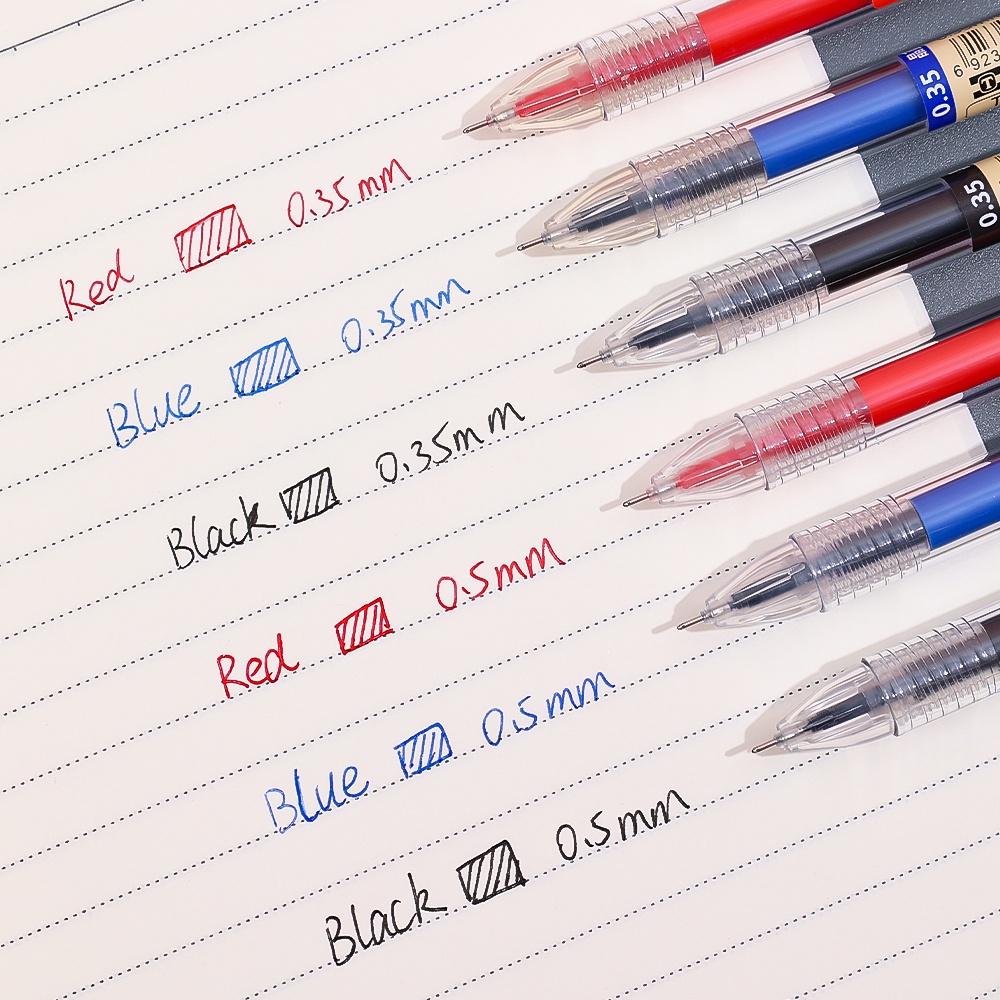 Red 0.35mm
Blue 0.35mm
Black 0.35mm
Red 0.5mm
Blue 0.5mm
Black 0.5mm
0.35
6 923
0.35